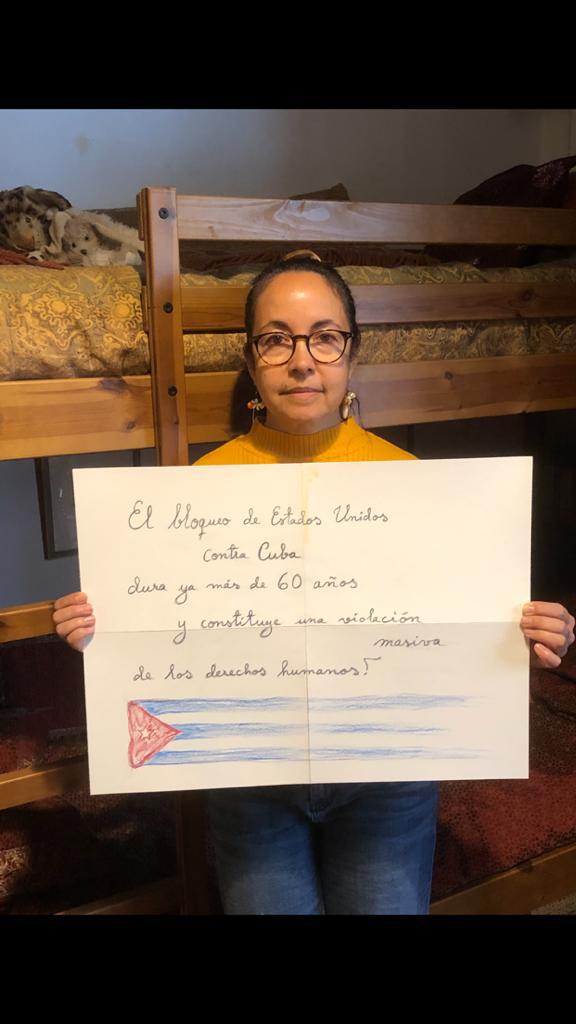 El bloqueo de Estados Unidos
contra Cuba
dura ya más de 60 años
y constituye una violación
masiva
de los derechos humanos!